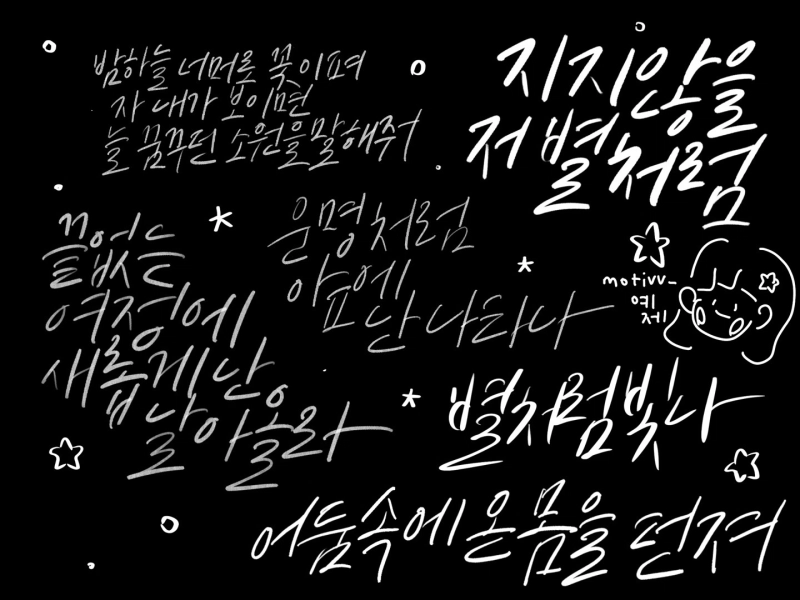 밤하늘 너머로 꽃이 펴
자 내가 보이면
늘 꿈꾸던 소원을 말해줘
지지 않을
저 별처럼
끝없는
여정에
새롭게 난
날아올라
운명처럼
앞에
난 나타나
motivv_
예
제
별처럼 빛나
어둠 속에 온몸을 던져